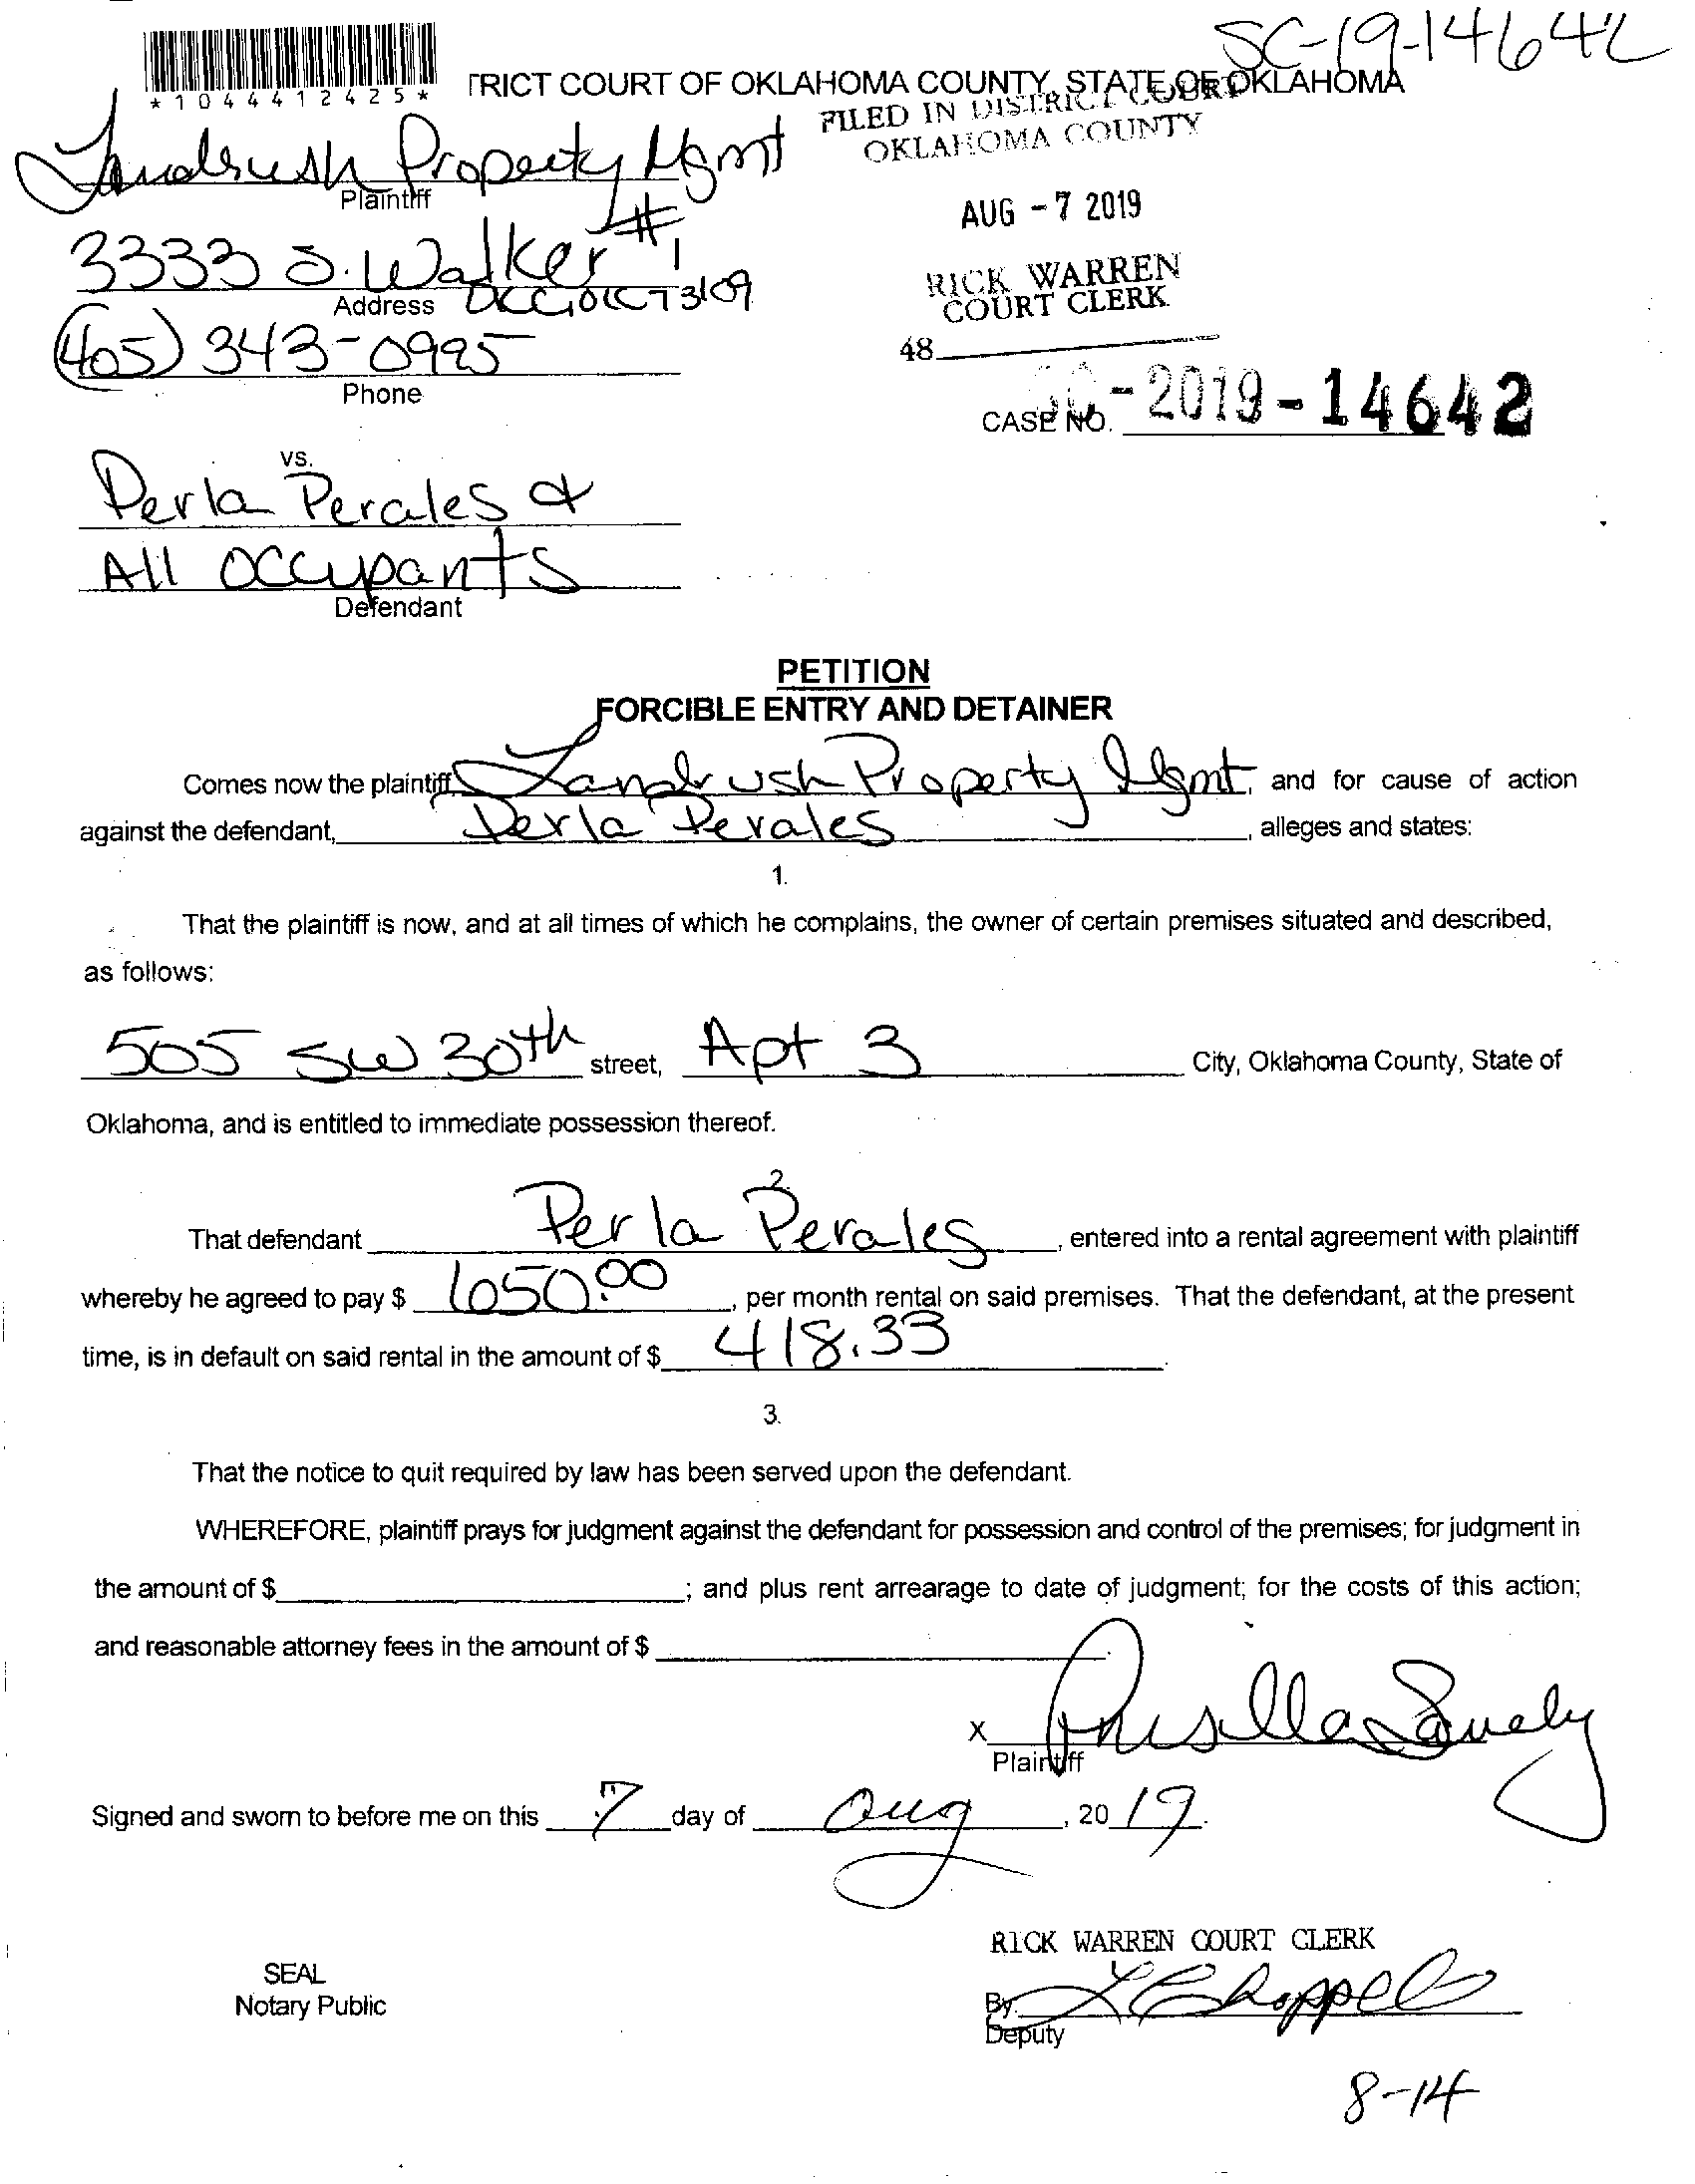 SC-19-14642
*1044412425*
TRICT COURT OF OKLAHOMA COUNTY, STATE OF OKLAHOMA
FILED IN DISTRICT COURT
OKLAHOMA COUNTY
Landrush Property Mgmt
Plaintiff
AUG - 7 2019
3333 S. Walker #1
Address OKC, OK 73109
RICK WARREN
COURT CLERK
(405) 343-0995
Phone
48
CASE NO. SC-2019-14642
vs.
Perla Perales &
All Occupants
Defendant
PETITION
FORCIBLE ENTRY AND DETAINER
Comes now the plaintiff, Landrush Property Mgmt, and for cause of action
against the defendant, Perla Perales, alleges and states:
1.
That the plaintiff is now, and at all times of which he complains, the owner of certain premises situated and described,
as follows:
505 SW 30th street, Apt 3 City, Oklahoma County, State of
Oklahoma, and is entitled to immediate possession thereof.
2.
That defendant Perla Perales, entered into a rental agreement with plaintiff
whereby he agreed to pay $ 650.00, per month rental on said premises. That the defendant, at the present
time, is in default on said rental in the amount of $ 418.33.
3.
That the notice to quit required by law has been served upon the defendant.
WHEREFORE, plaintiff prays for judgment against the defendant for possession and control of the premises; for judgment in
the amount of $ ; and plus rent arrearage to date of judgment; for the costs of this action;
and reasonable attorney fees in the amount of $ .
x Prisilla Snuely
Plaintiff
Signed and sworn to before me on this 7 day of Aug, 2019.
RICK WARREN COURT CLERK
SEAL
Notary Public
By
Deputy
8-14